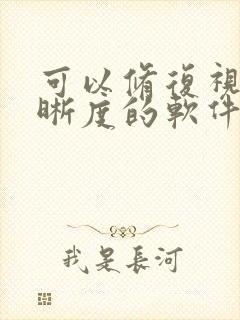 可以脩復視
晰度的軟件
我是長河